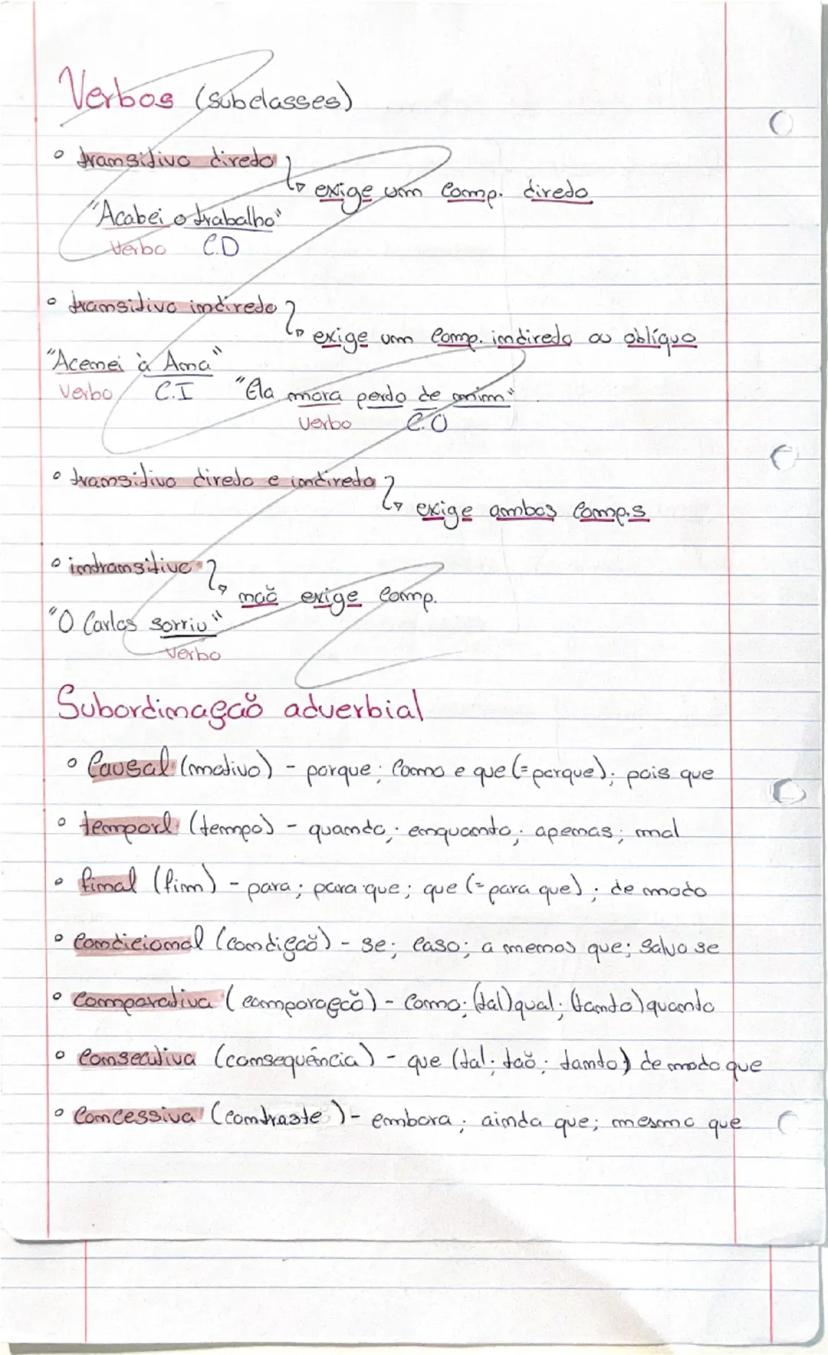 Verbos (subclasses)
• transitivo direto ↳ exige um comp. direto
"Acabei o trabalho"
Verbo C.D
• transitivo indireto ↳ exige um comp. indireto ou oblíquo
"Acenei à Ana"
Verbo C.I "Ela mora perto de mim"
Verbo C.O
• transitivo direto e indireto ↳ exige ambos comp.s
• intransitivo ↳ não exige comp.
"O Carlos sorriu"
Verbo
Subordinação adverbial
• Causal (motivo) - porque; como e que (=porque); pois que
• temporl (tempo) - quando; enquanto; apenas; mal
• final (fim) - para; para que; que (=para que); de modo
• condicional (condição) - se; caso; a menos que; salvo se
• comparativa (comparação) - como; (tal)qual; (tanto)quanto
• consecutiva (consequência) - que (tal; tão; tanto) de modo que
• concessiva (contraste) - embora; ainda que; mesmo que